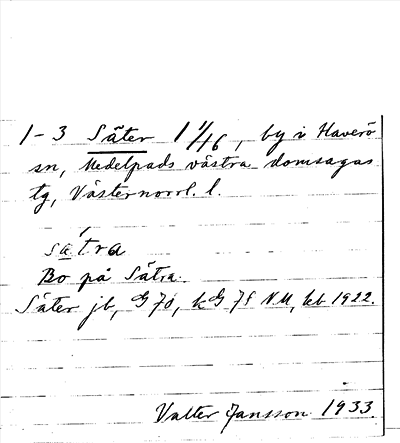 1-3 Säter 1 1/16, by i Haverö
sn, Medelpads västra domsagas
tg, Västernorrl. l.
sa̲̍tra
Bo på Sätra.
Säter jb, G 70, kG 7f N.U, kb 1922.
Valter Jansson 1933.